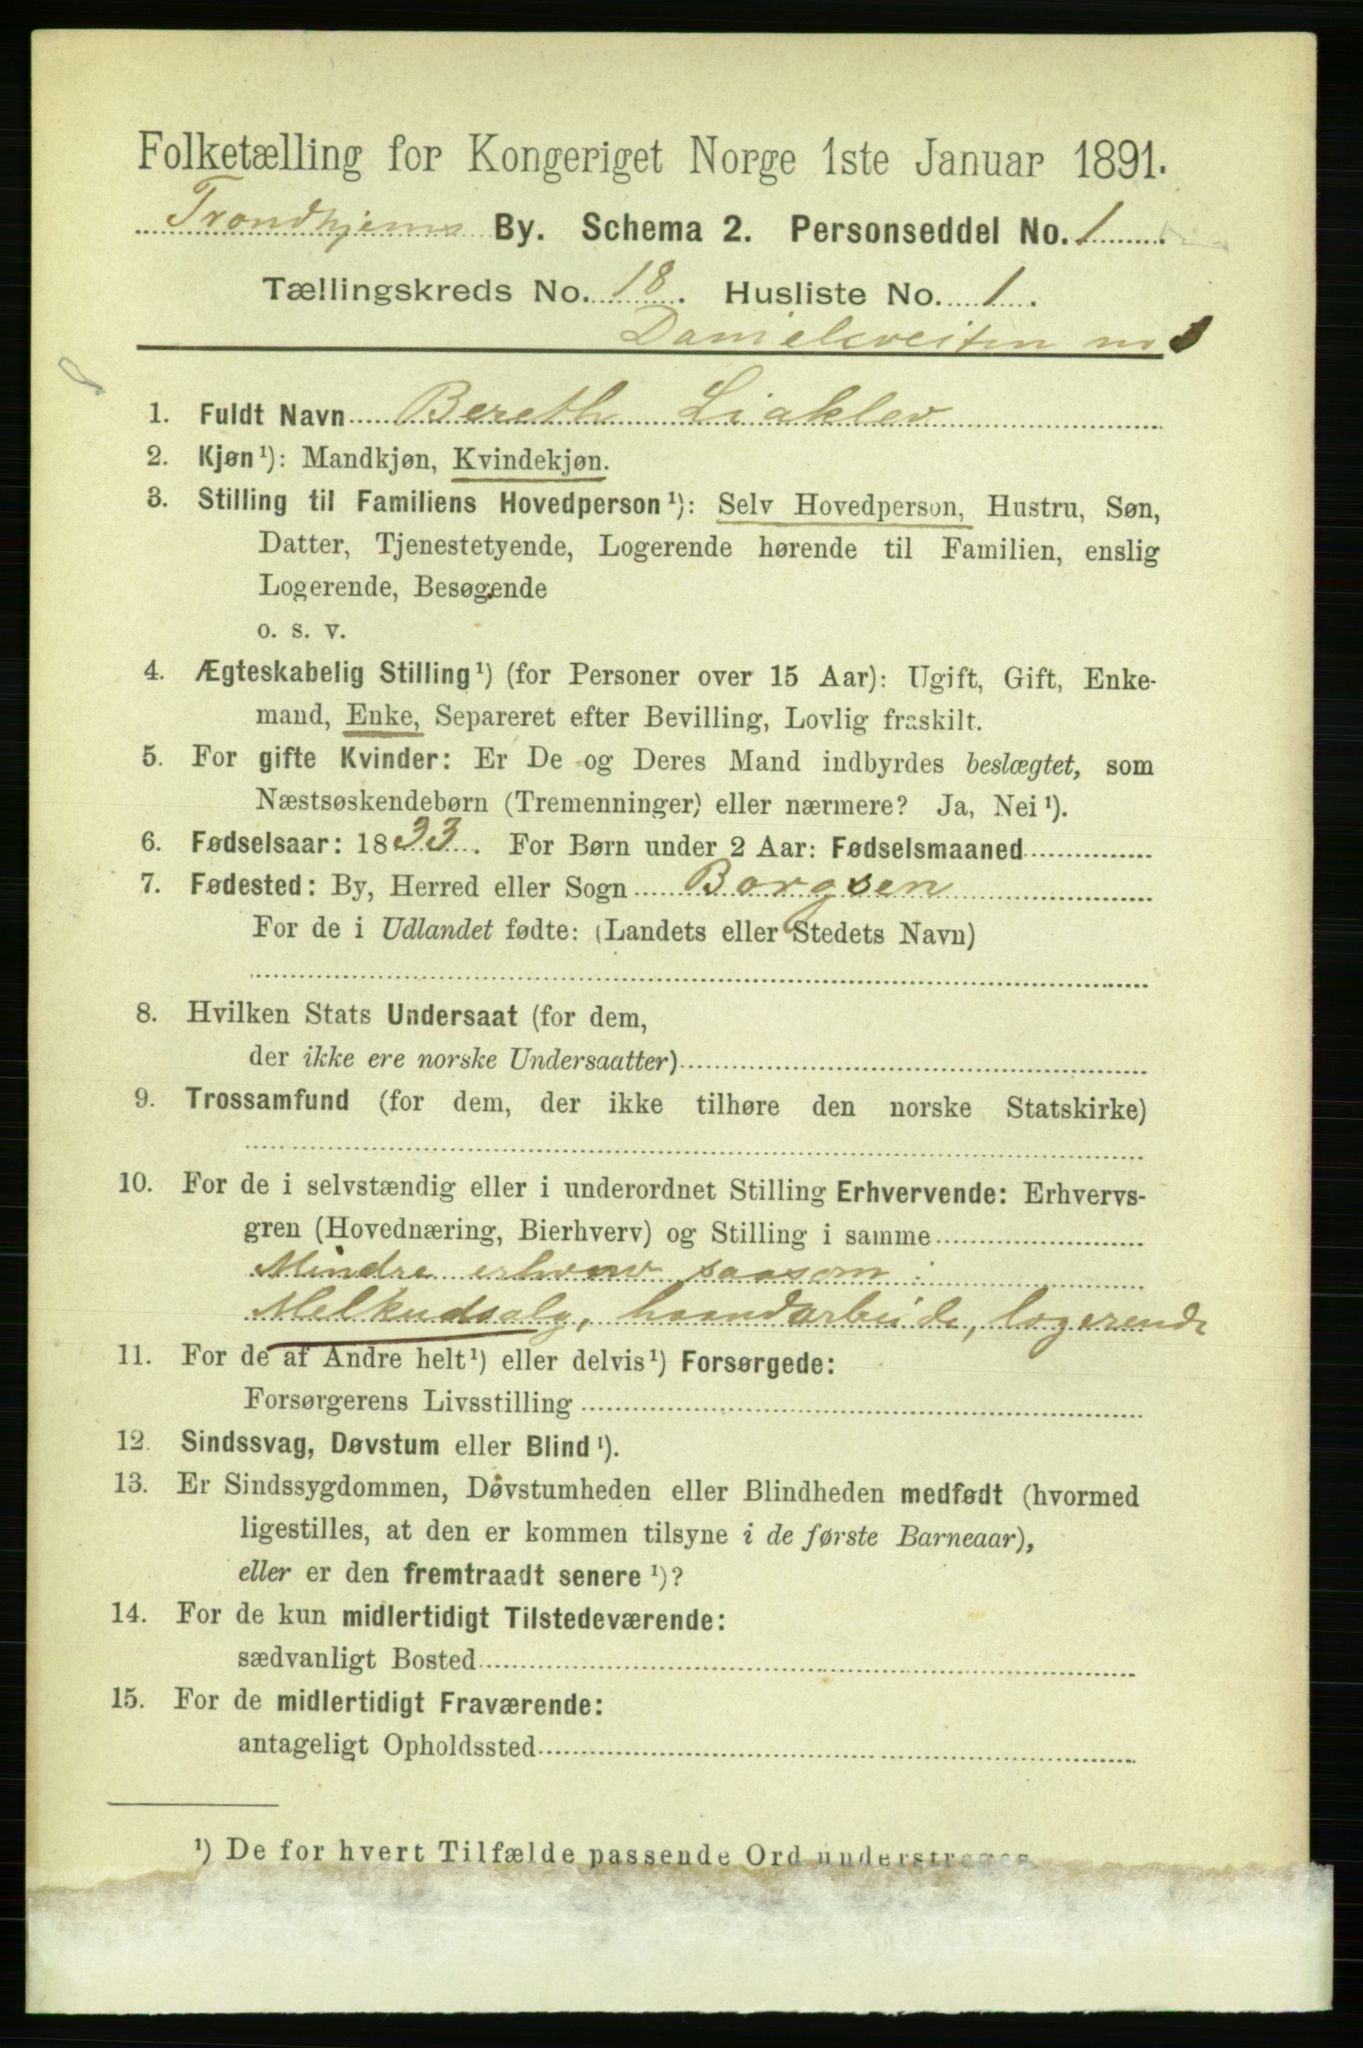 Folketælling for Kongeriget Norge 1ste Januar 1891.
Trondhjems By. Schema 2. Personseddel No. 1.
Tællingskreds No. 18. Husliste No. 1.
Danielsveiten no
1. Fuldt Navn Bereth Liaklev
2. Kjøn¹): Mandkjøn, Kvindekjøn.
3. Stilling til Familiens Hovedperson¹): Selv Hovedperson, Hustru, Søn,
Datter, Tjenestetyende, Logerende hørende til Familien, enslig
Logerende, Besøgende
o. s. v.
4. Ægteskabelig Stilling¹) (for Personer over 15 Aar): Ugift, Gift, Enke-
mand, Enke, Separeret efter Bevilling, Lovlig fraskilt.
5. For gifte Kvinder: Er De og Deres Mand indbyrdes beslægtet, som
Næstsøskendebørn (Tremenninger) eller nærmere? Ja, Nei¹).
6. Fødselsaar: 1833. For Børn under 2 Aar: Fødselsmaaned
7. Fødested: By, Herred eller Sogn Borgsen
For de i Udlandet fødte: (Landets eller Stedets Navn)
8. Hvilken Stats Undersaat (for dem,
der ikke ere norske Undersaatter)
9. Trossamfund (for dem, der ikke tilhøre den norske Statskirke)
10. For de i selvstændig eller i underordnet Stilling Erhvervende: Erhvervs-
gren (Hovednæring, Bierhverv) og Stilling i samme
Mindre erhverv saasom:
Melkudsalg, haandarbeide, logerende
11. For de af Andre helt¹) eller delvis¹) Forsørgede:
Forsørgerens Livsstilling
12. Sindssvag, Døvstum eller Blind¹).
13. Er Sindssygdommen, Døvstumheden eller Blindheden medfødt (hvormed
ligestilles, at den er kommen tilsyne i de første Barneaar),
eller er den fremtraadt senere¹)?
14. For de kun midlertidigt Tilstedeværende:
sædvanligt Bosted
15. For de midlertidigt Fraværende:
antageligt Opholdssted
¹) De for hvert Tilfælde passende Ord understreges.